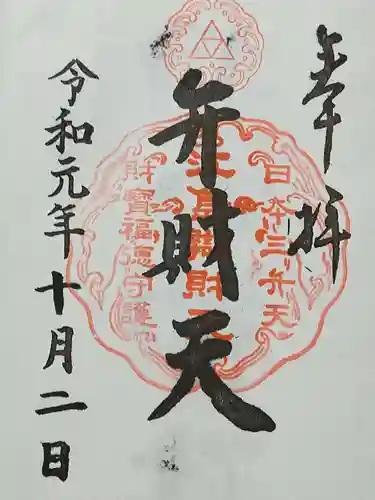 奉拝
弁財天
令和元年十月二日
日本三弁天
江島辨財天
財寶福徳守護